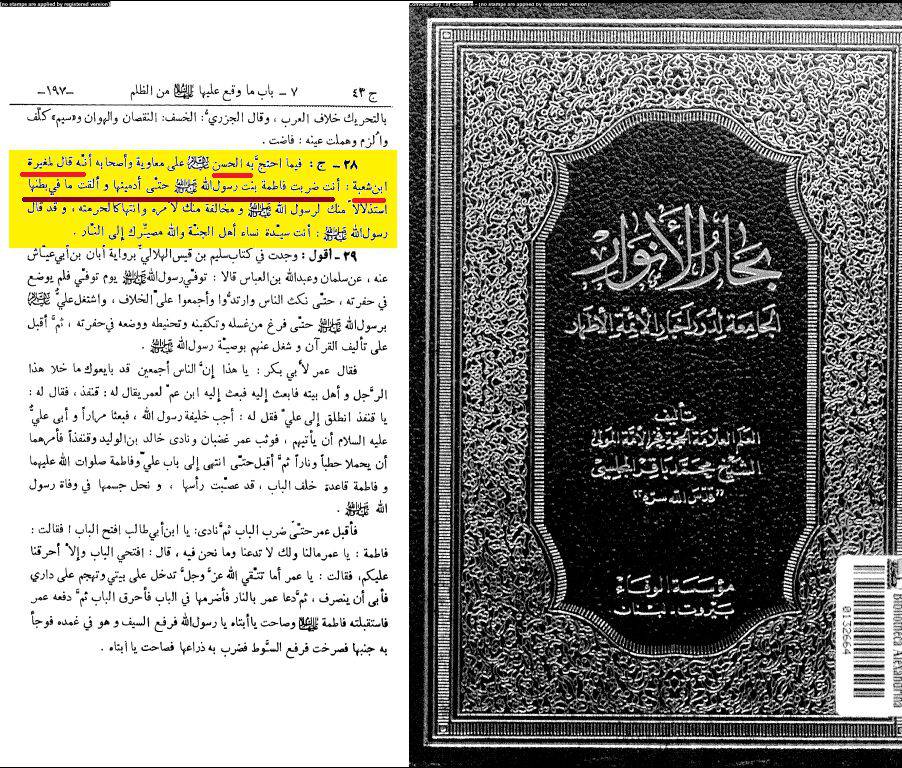 (no stamps are applied by registered version)
ج ٤٣ ٧ ـ باب ما وقع عليها من الظلم ـ١٩٧ـ
بالتحريك خلاف العرب ، وقال الجزريُّ: الخسف: النقصان والهوان و«سيم» كلّف
واُلزم وهملت عينه : فاضت .
٢٨ ـ ج : فيما احتجَّ به الحسن على معاوية وأصحابه أنّه قال لمغيرة
ابن شعبة : أنت ضربت فاطمة بنت رسول الله حتّى أدميتها و ألقت ما في بطنها
استذلالاً منك لرسول الله و مخالفة منك لأمره وانتهاكاً لحرمته ، و قد قال
رسول الله : أنت سيّدة نساء أهل الجنّة والله مصيّرك إلى النّار .
٢٩ ـ أقول : وجدت في كتاب سليم بن قيس الهلالي برواية أبان بن أبي عيّاش
عنه ، عن سلمان وعبدالله بن العباس قالا : توفّي رسول الله يوم توفّي فلم يوضع
في حفرته ، حتّى نكث الناس وارتدُّوا وأجمعوا على الخلاف ، واشتغل عليٌّ
برسول الله حتّى فرغ من غسله وتكفينه وتحنيطه ووضعه في حفرته ، ثمَّ أقبل
على تأليف القرآن و شغل عنهم بوصيّة رسول الله .
فقال عمر لأبي بكر : يا هذا إنَّ الناس أجمعين قد بايعوك ما خلا هذا
الرَّجل و أهل بيته فابعث إليه فبعث إليه ابن عمّ لعمر يقال له : قنفذ ، فقال له :
يا قنفذ انطلق إلى عليّ فقل له : أجب خليفة رسول الله ، فبعثا مراراً و أبى عليٌّ
عليه السلام أن يأتيهم ، فوثب عمر غضبان ونادى خالد بن الوليد وقنفذاً فأمرهما
أن يحملا حطباً وناراً ثمَّ أقبل حتّى انتهى إلى باب عليّ وفاطمة صلوات الله عليهما
و فاطمة قاعدة خلف الباب ، قد عصّبت رأسها ، و نحل جسمها في وفاة رسول
الله .
فأقبل عمر حتّى ضرب الباب ثمَّ نادى: يا ابن أبي طالب افتح الباب ! فقالت :
فاطمة : يا عمر مالنا ولك لا تدعنا وما نحن فيه ، قال : افتحي الباب وإلاّ أحرقنا
عليكم، فقالت : يا عمر أما تتّقي الله عزَّ وجلَّ تدخل على بيتي وتهجم على داري
فأبى أن ينصرف ، ثمَّ دعا عمر بالنار فأضرمها في الباب فأحرق الباب ثمَّ دفعه عمر
فاستقبلته فاطمة وصاحت يا أبتاه يا رسول الله فرفع السيف و هو في غمده فوجأ
به جنبها فصرخت فرفع السَّوط فضرب به ذراعها فصاحت يا أبتاه .
(no stamps are applied by registered version)
بحار الأنوار
الجامعة لدرر أخبار الأئمة الأطهار
تأليف
العلم العلامة الحجة فخر الأمة المولى
الشيخ محمد باقر المجلسي
"قدس الله سره"
مؤسسة الوفاء
بيروت ـ لبنان
0132664